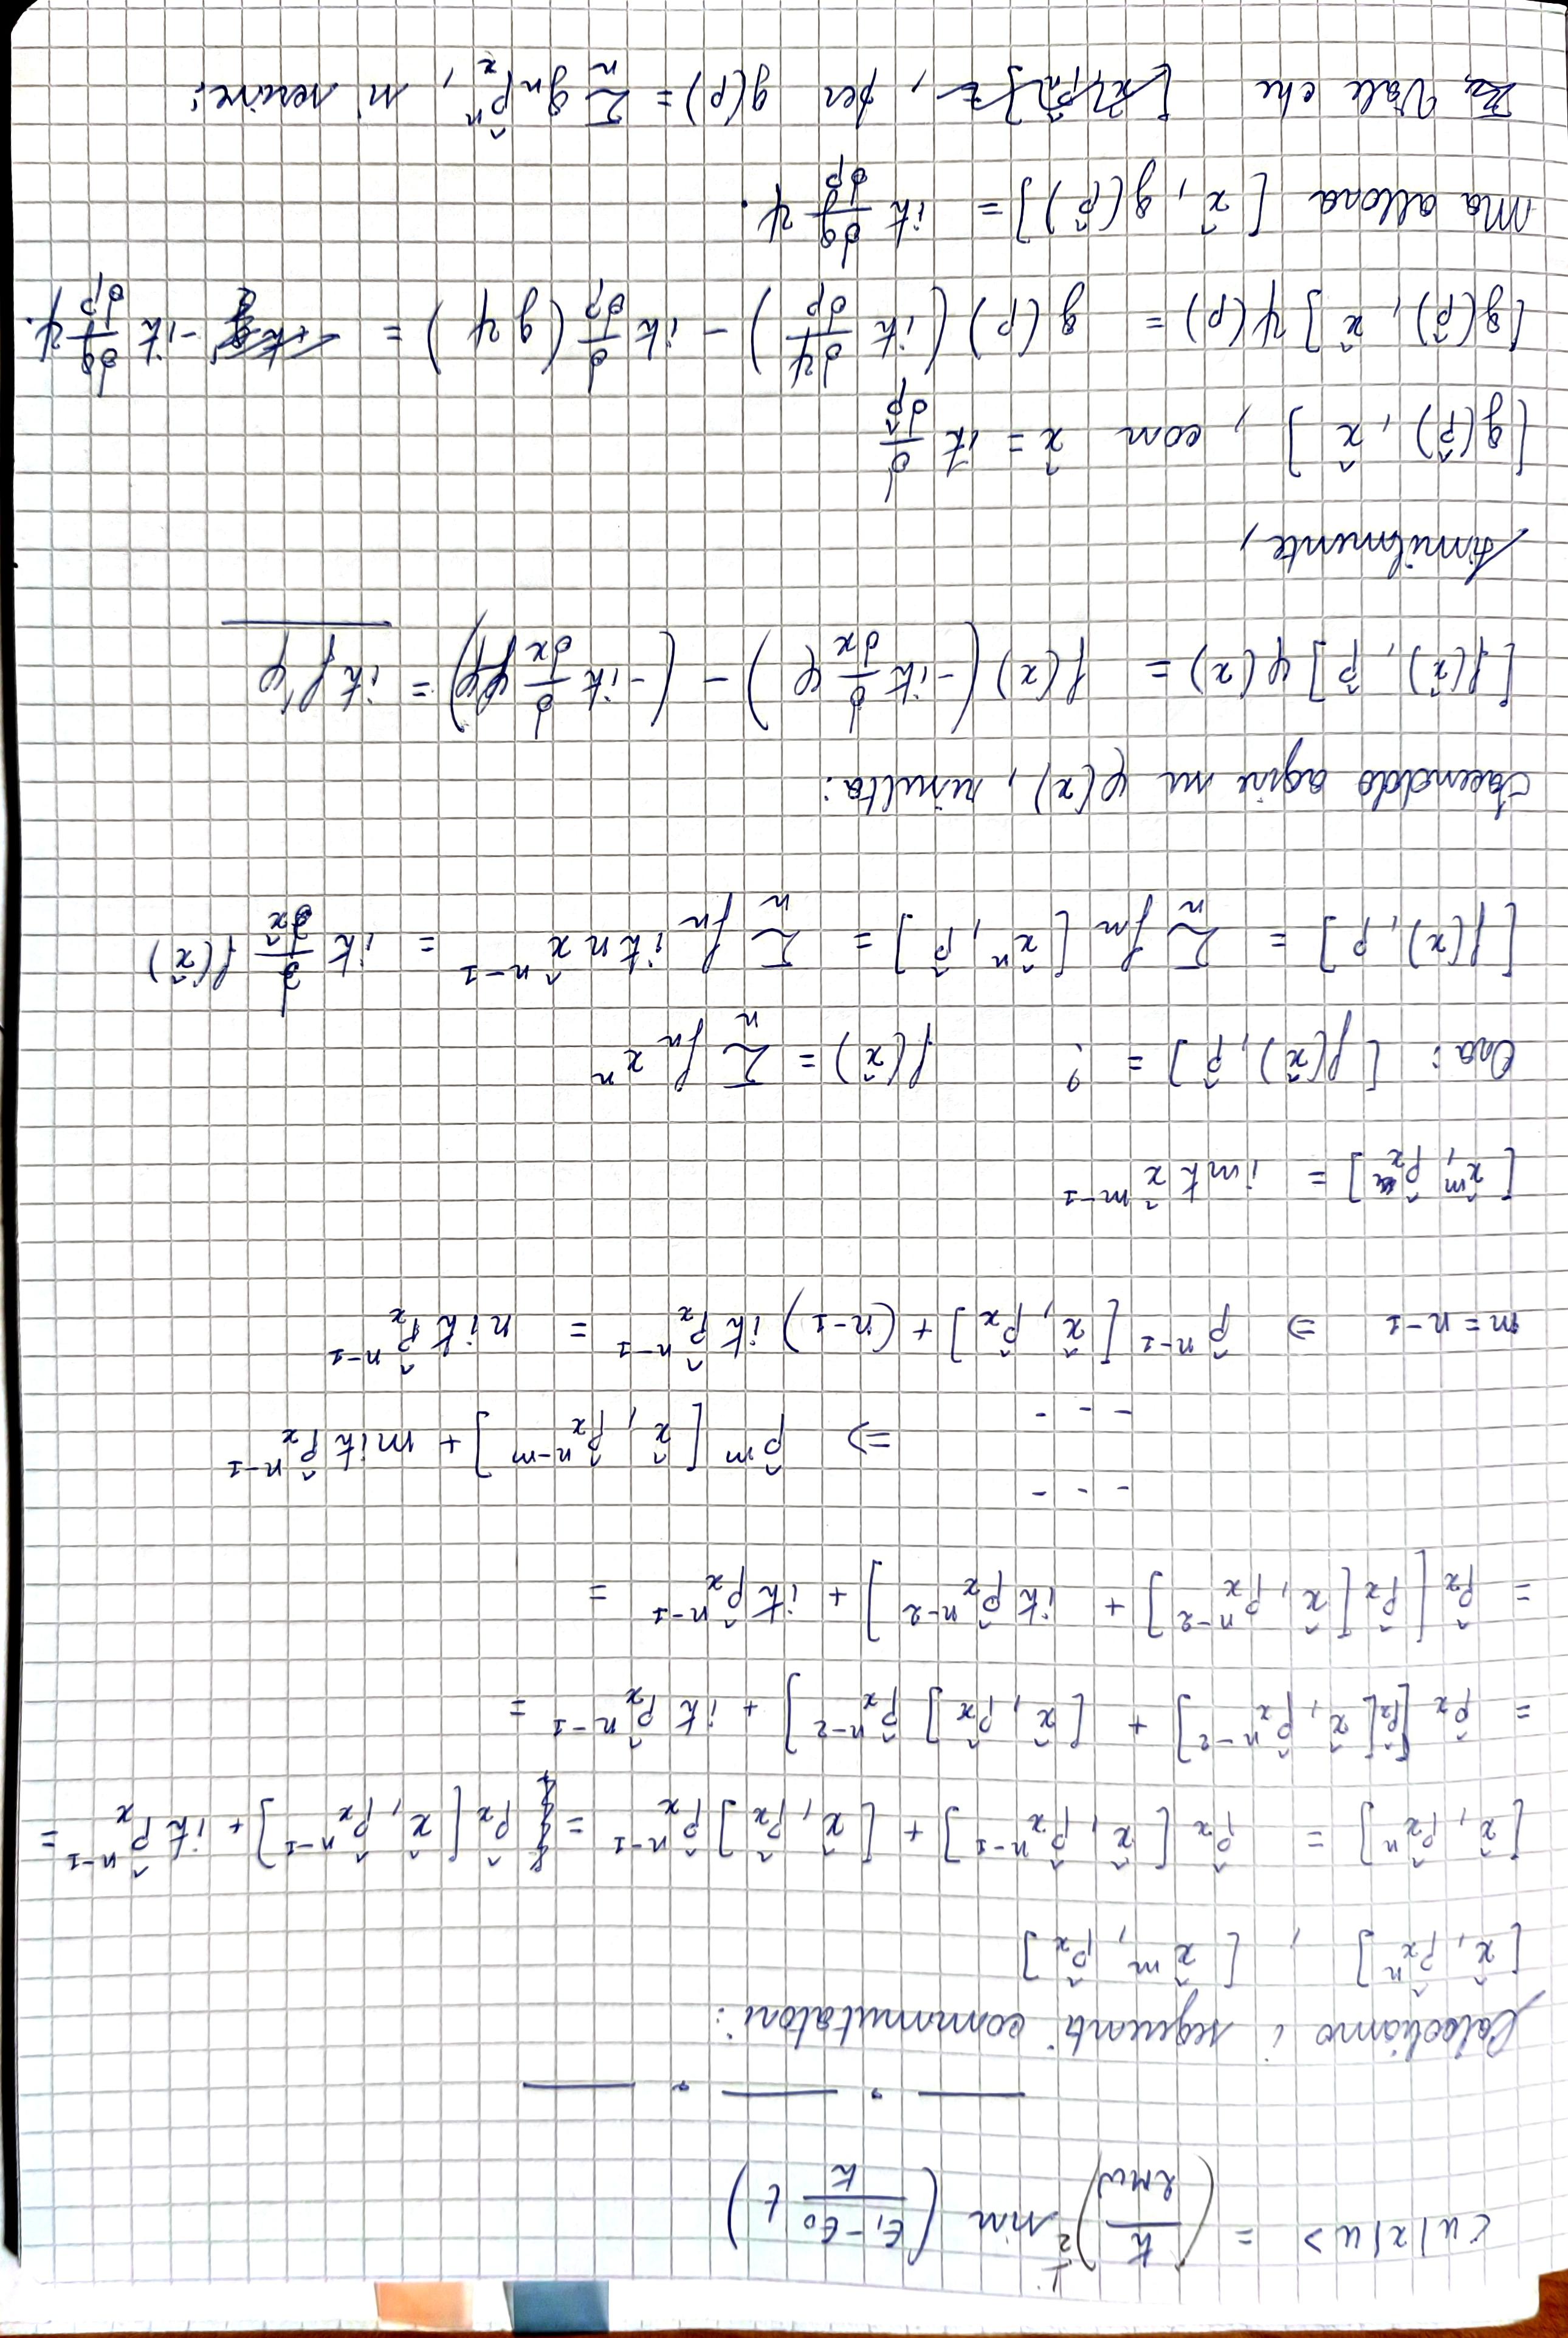 <u|x|u> = (ħ/2mω)^½ sin (E₁-E₀/ħ t)
Calcoliamo i seguenti commutatori:
[x̂, p̂ₓⁿ] , [x̂ᵐ, p̂ₓ]
[x̂, p̂ₓⁿ] = p̂ₓ [x̂, p̂ₓⁿ⁻¹] + [x̂, p̂ₓ] p̂ₓⁿ⁻¹ = p̂ₓ [x̂, p̂ₓⁿ⁻¹] + iħ p̂ₓⁿ⁻¹ =
= p̂ₓ [p̂ₓ[x̂, p̂ₓⁿ⁻²] + [x̂, p̂ₓ] p̂ₓⁿ⁻²] + iħ p̂ₓⁿ⁻¹ =
= p̂ₓ [p̂ₓ[x̂, p̂ₓⁿ⁻²] + iħ p̂ₓⁿ⁻²] + iħ p̂ₓⁿ⁻¹ =
- - -
⇒ p̂ᵐ [x̂, p̂ₓⁿ⁻ᵐ] + miħ p̂ₓⁿ⁻¹
- - -
m = n-1 ⇒ p̂ⁿ⁻¹ [x̂, p̂ₓ] + (n-1) iħ p̂ₓⁿ⁻¹ = niħ p̂ₓⁿ⁻¹
[x̂ᵐ, p̂ₓ] = imħ x̂ᵐ⁻¹
Ora: [f(x̂), p̂] = ? f(x̂) = Σₙ fₙ xⁿ
[f(x), p] = Σₙ fₙ [x̂ⁿ, p̂] = Σₙ fₙ iħn x̂ⁿ⁻¹ = iħ ∂/∂x̂ f(x̂)
Facenddo agire su φ(x), risulta:
[f(x̂), p̂] φ(x) = f(x) (-iħ ∂/∂x φ) - (-iħ ∂/∂x fφ) = iħf'φ
Similmente,
[g(p̂), x̂] , con x̂ = iħ ∂/∂p̂
[g(p̂), x̂] ψ(p) = g(p) (iħ ∂ψ/∂p) - iħ ∂/∂p (gψ) = -iħ ∂g/∂p ψ.
Ma allora [x̂, g(p̂)] = iħ ∂g/∂p ψ.
Vale che [x̂, p̂ₓⁿ] =, per g(p) = Σₙ gₙ p̂ₓⁿ, si scrive: